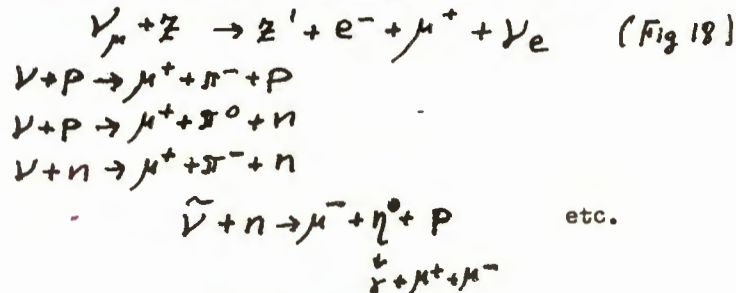 ν_μ + Z → Z' + e⁻ + μ⁺ + ν_e (Fig 18)
ν + p → μ⁺ + π⁻ + p
ν + p → μ⁺ + π⁰ + n
ν + n → μ⁺ + π⁻ + n
ν̃ + n → μ⁻ + η⁰ + p etc.
↓
γ + μ⁺ + μ⁻